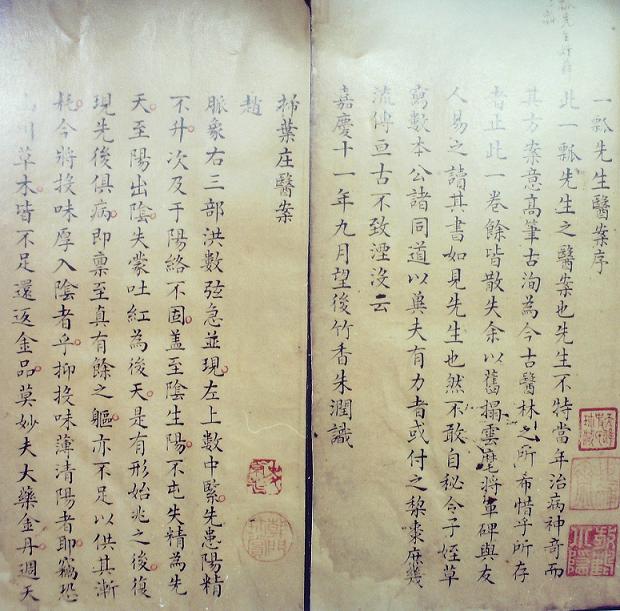 一瓢先生醫案序
此一瓢先生之醫案也先生不特當年治病神奇而
其方案意高筆古洵為今古醫林之所希惜乎所存
者止此一卷餘皆散失余以舊搨雲麾將軍碑與友
人易之讀其書如見先生也然不敢自秘令子姪草
寫數本公諸同道以冀夫有力者或付之棃棗庶幾
流傳亘古不致湮沒云
嘉慶十一年九月望後竹香朱潤識
掃葉庄醫案
趙
脈象右三部洪數弦急並現左上數中緊先患陽精
不升次及于陽絡不固盖至陰生陽不屯失精為先
天至陽出陰失蒙吐紅為後天是有形始兆之後復
現先後俱病即禀至真有餘之軀亦不足以供其漸
耗今將投味厚入陰者乎抑投味薄清陽者耶竊恐
川草木皆不足還返金品莫妙夫大藥金丹週天